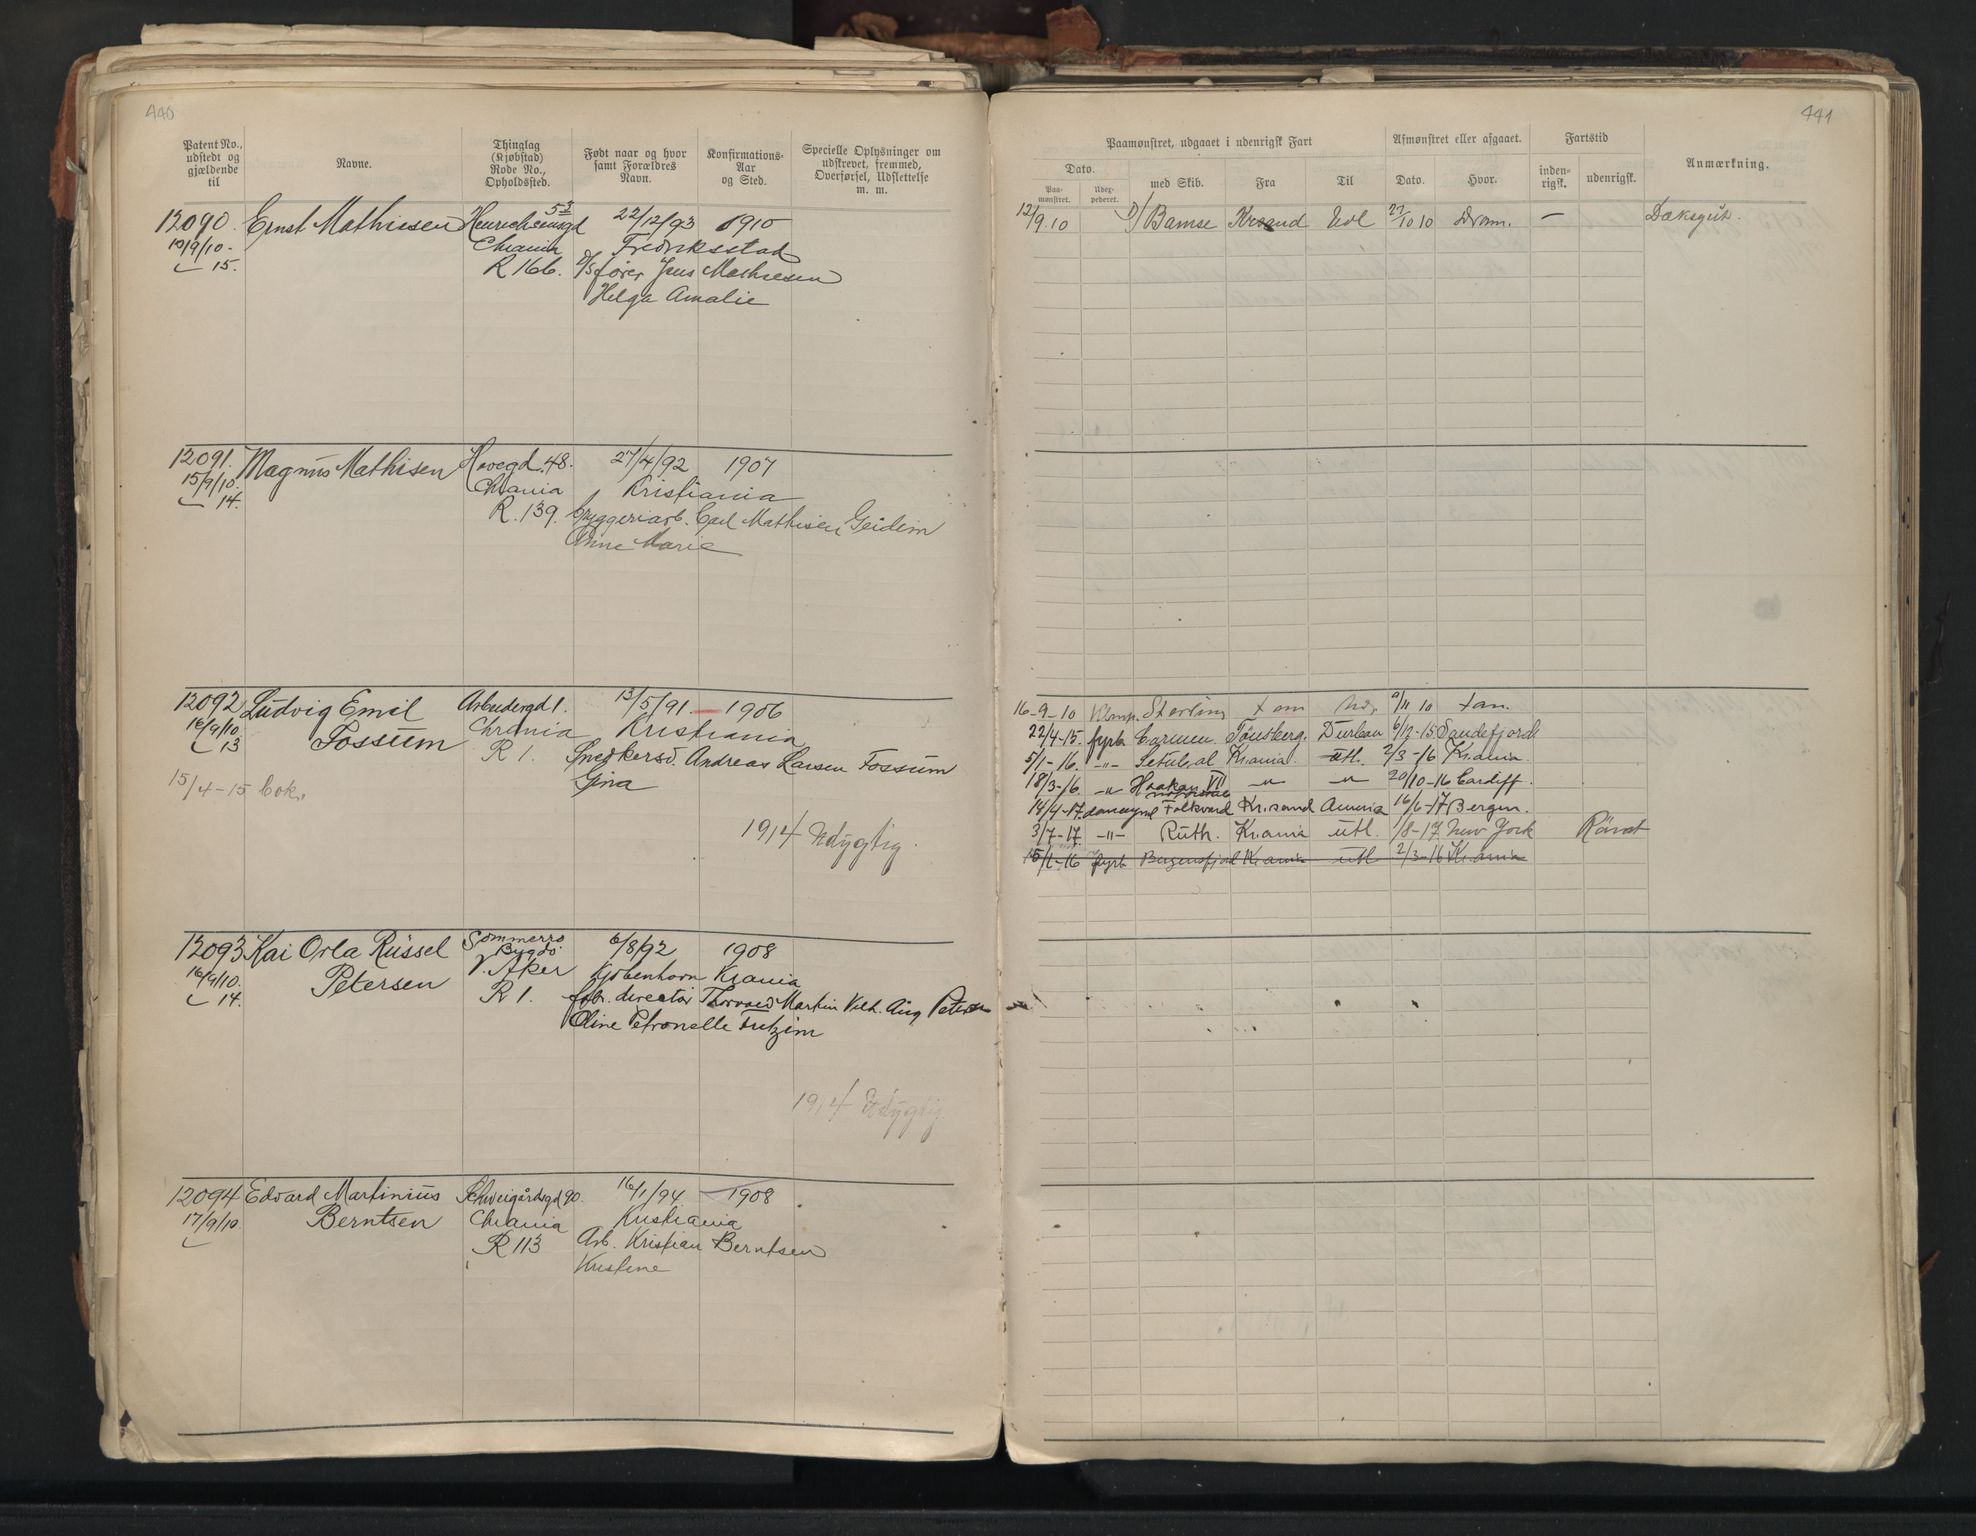 440
Patent No., udstedt og gjældende til
Navne.
Thinglag (Kjøbstad) Rode No., Opholdssted.
Født naar og hvor samt Forældres Navn.
Konfirmations-Aar og Sted.
Specielle Oplysninger om udskrevet, fremmed, Overførsel, Udslettelse m. m.
12090. Ernst Mathiesen Henrichsensgd 53 22/12/93 1910
10/9/10- Chrania Fredriksstad
15. R 166. D/S fører Jens Mathiesen
Helga Amalie
12091. Magnus Mathisen Hovegd. 48. 27/4/92 1907
15/9/10. Chrania Kristiania
14. R. 139. bryggeriarb. Carl Mathisen Geidem
Anne Marie
12092 Ludvig Emil Arbeidergd 1. 13/5/91 — 1906
16/9/10. Fossum Chrania Kristiania
13 R 1. Snedkersv. Andreas Larsen Fossum
15/4-15 Gina
1914 Udygtig.
12093 Kai Orla Russel Sommerro 6/8/92 1908
Bygdø
16/9/10. Petersen V. Aker Kjøbenhavn Krania
14. R 1. fabr. director Thorvald Martin Vilh. Aug Petersen
Oline Petronelle
1914 Udygtig
12094 Edvard Martinius Schweigårdsgd 90. 16/1/94 1908
17/9/10. Berntsen Chrania Kristiania
R 113 Arb. Kristian Berntsen
Kristine
441
Paamønstret, udgaaet i udenrigsk Fart
Afmønstret eller afgaaet.
Fartstid
Anmærkning.
Dato.
Paa-mønstret.
Udex-pederet.
med Skib.
Fra
Til
Dato.
Hvor.
inden-rigsk.
udenrigsk.
12/9.10 D/ Bamse Krsand Udl 27/10 10 Dram. — Dæksgut.
16-9-10 Sterling 9/11 10
22/4-15. fyrb Carmen Tønsberg. Durban 6/12-15 Sandefjord
5/1-16. -"- Setubal Krania. utl. 2/3-16 Krania
18/3-16. -"- Haakon VII -"- -"- 20/10-16 Cardiff.
14/4-17. Folkvard Kr.sand 16/6-17 Bergen.
3/7-17. -"- Ruth. Krania utl. 1/8-17 New York Rømt
15/1-16 fyrb Bergensfjord Krania utl 2/3-16 Krania